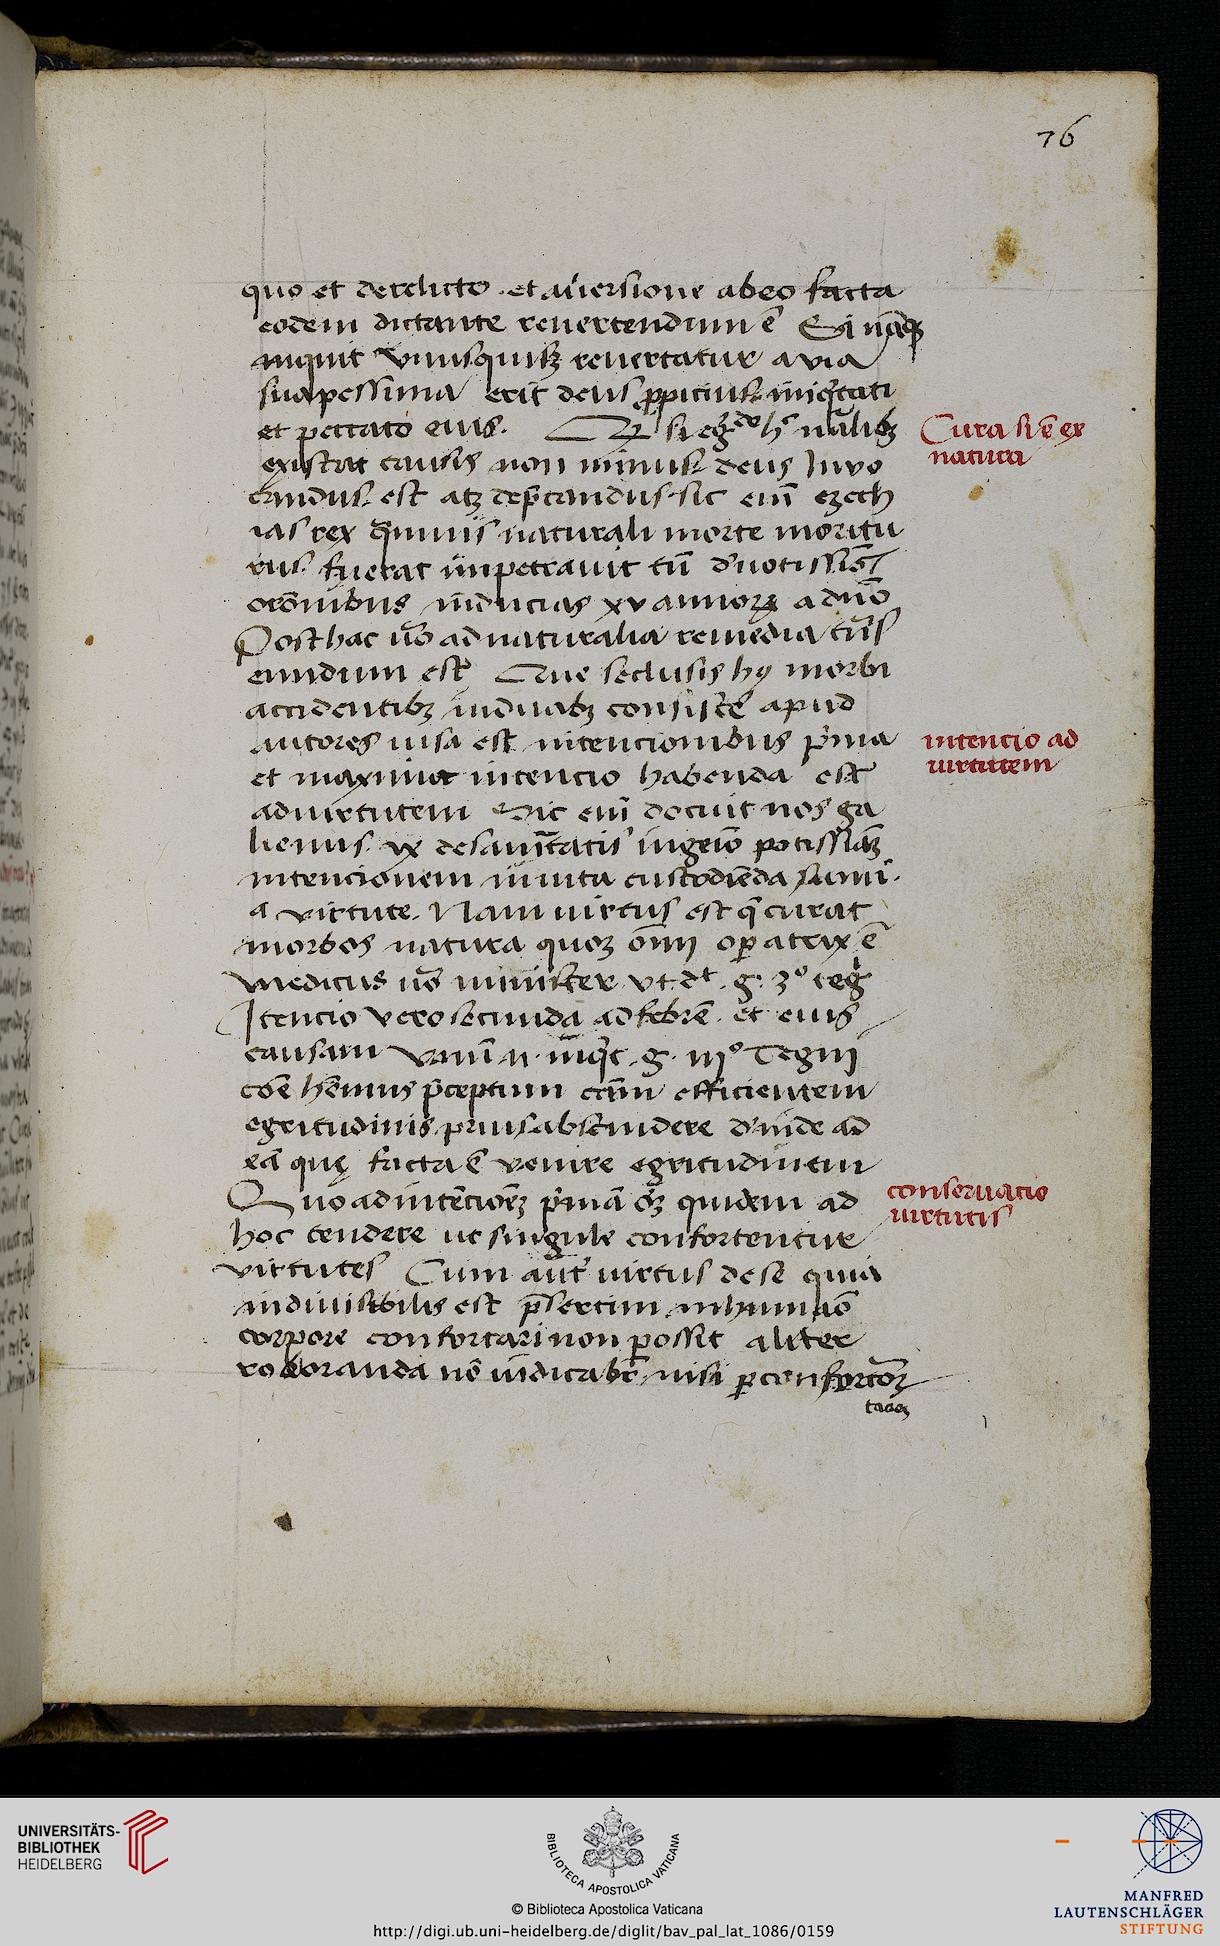 76
quo et derelicto et auersione ab eo facta
eodem dictante reuertendum ē Si nāqꝫ
inquit vnusquisqꝫ reuertatur a via
sua pessima erit deus ꝓpicius iniqͥtati
et peccato eius. Qꝫ si egͥdo hͨ nāalibꝫ
existat causis non minus deus Inuo
candus est atqꝫ dep̄candus sic eni̅ ezech
ias rex qͣmuis naturali morte moritu
rus fuerat impetrauit tn̄ d'uotissiōꝫ
orōnibus inducias xv annorꝝ a dn̄o
Post hac uō ad naturalia remedia
eundum est Que seclusis hy morbi
accidentibꝫ in duabꝫ consistē apud
autores uisa est intencionibus pͥma
et maxima intencio habenda est
ad virtutem Sic eni̅ docuit nos ga
lienus ix de sanitatis ingeīo potissīaꝫ
intencionem in uita custodiēda sumi
a virtute. Nam uirtus est qͣ curat
morbos natura quoqꝫ om̄i opatrix ē
medicus uō minister vt dt g. 3º teg̃
Itencio vero secunda ad febrē et eius
causam Vnū n. inqͥt g. iijº Tegni
cōe hēmus p̄ceptum efficientem
egritudinis prius abscindere d'inde ad
eā quę facta ē venire egritudinem
Quo ad intēcioēꝫ pͥmā oꝫ quidem ad
hoc tendere ut singule confortentur
virtutes Cum aut̄ uirtus de se quia
indiuisibilis est p̄sertim in humāo
corpore confortari non possit aliter
roboranda nō iudicabr̄ nisi ꝑ confortōꝫ
Cura si ē ex
natura
intencio ad
uirtutem
conseruacio
uirtutis
UNIVERSITÄTS-
BIBLIOTHEK
HEIDELBERG
BIBLIOTECA APOSTOLICA VATICANA
© Biblioteca Apostolica Vaticana
http://digi.ub.uni-heidelberg.de/diglit/bav_pal_lat_1086/0159
MANFRED
LAUTENSCHLÄGER
STIFTUNG